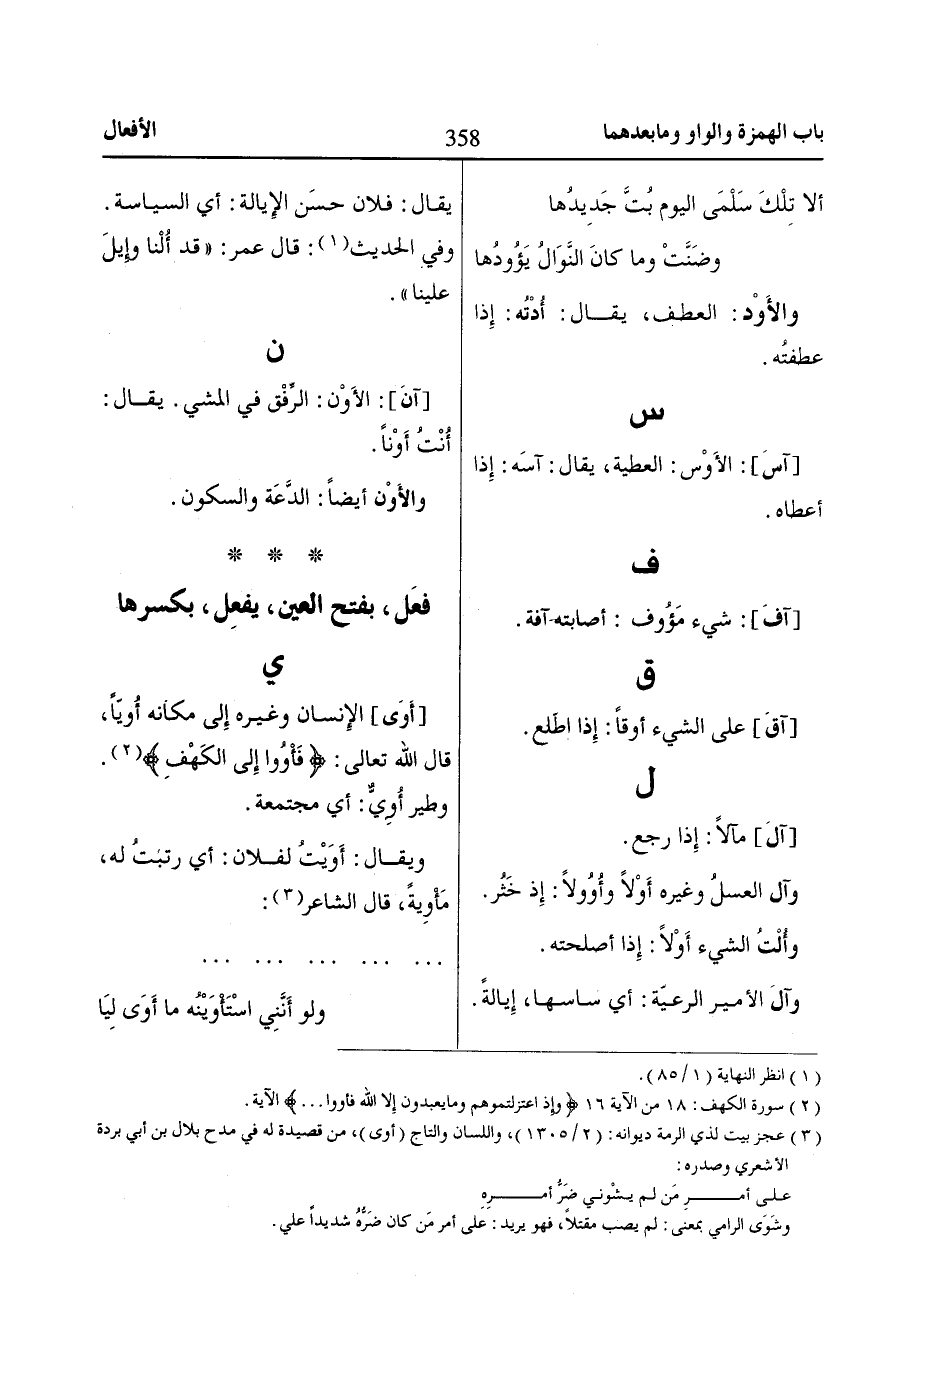 باب الهمزة والواو ومابعدهما
358
الأفعال
ألا تِلْكَ سَلْمَى اليوم بُتَّ جَدِيدُها
وضَنَّتْ وما كانَ النَّوَالُ يَؤُودُها
والأَوْد: العطف، يقال: أُدْتُه: إذا
عطفتُه.
س
[آسَ]: الأَوْس: العطية، يقال: آسَه: إذا
أعطاه.
ف
[آفَ]: شيء مَؤُوف : أصابته آفة.
ق
[آقَ] على الشيء أوقاً: إذا اطّلع.
ل
[آلَ] مآلاً: إذا رجع.
وآل العسلُ وغيره أَوْلاً وأُوُولاً: إذ خَثُر.
وأُلْتُ الشيء أَوْلاً: إذا أصلحته.
وآلَ الأمير الرعيّة: أي ساسها، إيالةً.
يقال: فلان حسَن الإيالة: أي السياسة.
وفي الحديث(١): قال عمر: «قد أُلْنا وإِيلَ
علينا».
ن
[آنَ]: الأَوْن: الرِّفْق في المشي. يقال:
أُنْتُ أَوْناً.
والأَوْن أيضاً: الدَّعَة والسكون.
* * *
فعَل، بفتح العين، يفعِل، بكسرها
ي
[أوَى] الإنسان وغيره إلى مكانه أُويّاً،
قال الله تعالى: ﴿فَأْوُوا إلى الكَهْفِ﴾(٢).
وطير أُوِيٌّ: أي مجتمعة.
ويقال: أَوَيْتُ لفلان: أي رتَبتُ له،
مَأْوِيةً، قال الشاعر(٣):
... ... ... ... ...
ولو أنَّني اسْتَأْوَيْتُه ما أَوَى لِيَا
(١) انظر النهاية (١/٨٥).
(٢) سورة الكهف: ١٨ من الآية ١٦ ﴿وإذ اعتزلتموهم ومايعبدون إلا الله فأووا...﴾ الآية.
(٣) عجز بيت لذي الرمة ديوانه: (٢/١٣٠٥)، واللسان والتاج (أوى)، من قصيدة له في مدح بلال بن أبي بردة
الأشعري وصدره:
على أمـــرِ مَن لم يشْوني ضَرُّ أمـــرِهِ
وشَوَى الرامي بمعنى: لم يصب مقتلاً، فهو يريد: على أمر مَن كان ضَرُّهُ شديداً علي.